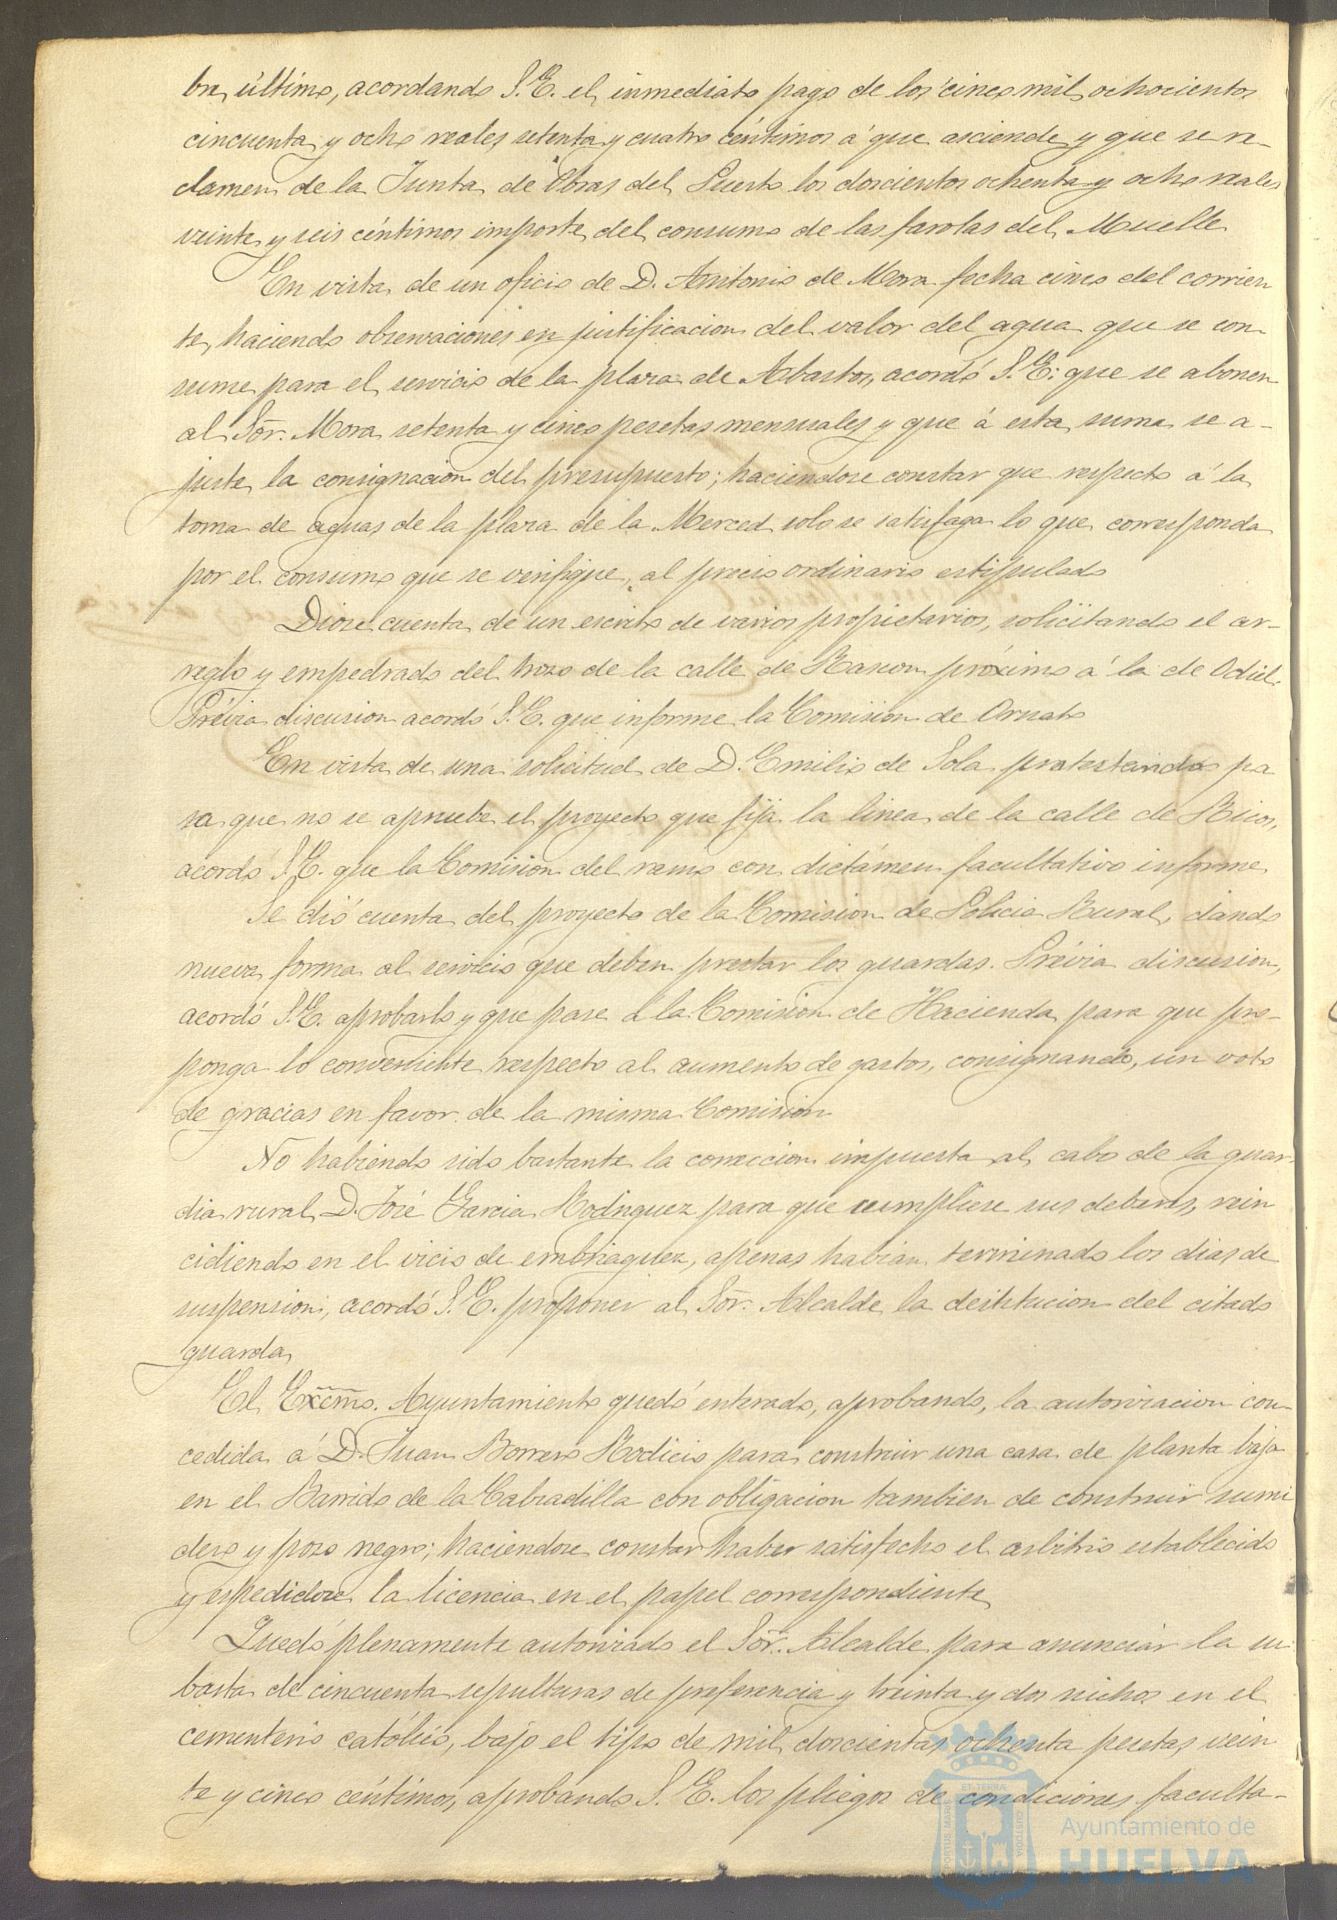 bre último, acordando S.E. el inmediato pago de los cinco mil ochocientos
cincuenta y ocho reales setenta y cuatro céntimos á que asciende y que se re-
clamen de la Junta de Obras del Puerto los doscientos ochenta y ocho reales
veinte y seis céntimos importe del consumo de las farolas del Muelle
En vista de un oficio de D. Antonio de Mora fecha cinco del corrien
te, haciendo observaciones en justificacion del valor del agua que se con-
sume para el servicio de la plaza de Abastos, acordó S.E. que se abonen
al Sor. Mora setenta y cinco pesetas mensuales y que á esta suma se a-
juste la consignacion del presupuesto; haciendose constar que respecto á la
toma de aguas de la plaza de la Merced solo se satisfaga lo que corresponda
por el consumo que se verifique, al precio ordinario estipulado
Diose cuenta de un escrito de varios propietarios, solicitando el ar-
reglo y empedrado del trozo de la calle de Rascon próximo á la de Odiel.
Prévia discusion acordó S.E. que informe la Comision de Ornato
En vista de una solicitud de D. Emilio de Sola protestando pa
ra que no se apruebe el proyecto que fija la linea de la calle de Ricos,
acordó S.E. que la Comision del ramo con dictámen facultativo informe
Se dió cuenta del proyecto de la Comision de Policia Rural, dando
nueva forma al servicio que deben prestar los guardas. Prévia discusion,
acordó S.E. aprobarlo y que pase á la Comision de Hacienda para que pro-
ponga lo conveniente respecto al aumento de gastos, consignando, un voto
de gracias en favor de la misma Comision
No habiendo sido bastante la correccion impuesta al cabo de la guar-
dia rural D. José Garcia Rodriguez para que cumpliese sus deberes, rein
cidiendo en el vicio de embriaguez, apenas habian terminado los dias de
suspension, acordó S.E. proponer al Sor. Alcalde la destitucion del citado
guarda
El Excmo. Ayuntamiento quedó enterado, aprobando, la autorizacion con-
cedida á D. Juan Borrero Rodicio para construir una casa de planta baja
en el Barrido de la Calzadilla con obligacion tambien de construir sumi
dero y pozo negro; haciendose constar haber satisfecho el arbitrio establecido
y espedidose la licencia en el papel correspondiente
Quedó plenamente autorizado el Sor. Alcalde para anunciar la su-
basta de cincuenta sepulturas de preferencia y treinta y dos nichos en el
cementerio católico, bajo el tipo de mil doscientas ochenta pesetas vein
te y cinco céntimos, aprobando S.E. los pliegos de condiciones faculta-
Ayuntamiento de
HUELVA